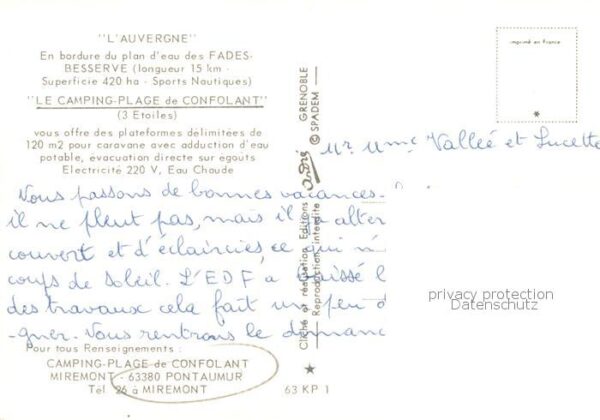 "L'AUVERGNE"
En bordure du plan d'eau des FADES-
BESSERVE (longueur 15 km -
Superficie 420 ha - Sports Nautiques)
"LE CAMPING-PLAGE de CONFOLANT"
(3 Etoiles)
vous offre des plateformes délimitées de
120 m2 pour caravane avec adduction d'eau
potable, évacuation directe sur egouts
Electricité 220 V, Eau Chaude
Nous passons de bonnes vacances-
il ne pleut pas, mais il y a alter
couvert et d'éclaircies, ce qui n'
coups de soleil. L'EDF a baissé l
des travaux cela fait un peu d
-gner. Nous rentrons le dimanc
Pour tous Renseignements :
CAMPING-PLAGE de CONFOLANT
MIREMONT - 63380 PONTAUMUR
Tél. 26 à MIREMONT
63 KP 1
Cliché et réalisation Editions André GRENOBLE
Reproduction interdite © SPADEM
imprimé en france
Mr Mme Valleé et Lucette
privacy protection
Datenschutz